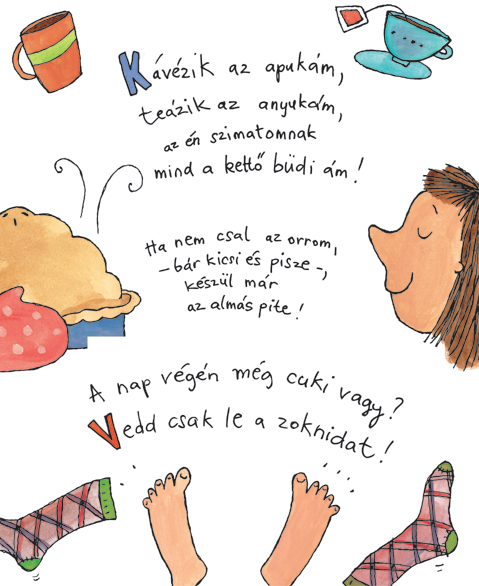 Kávézik az apukám,
teázik az anyukám,
az én szimatomnak
mind a kettő büdi ám!
Ha nem csal az orrom,
– bár kicsi és pisze –,
készül már
az almás pite!
A nap végén még cuki vagy?
Vedd csak le a zoknidat!